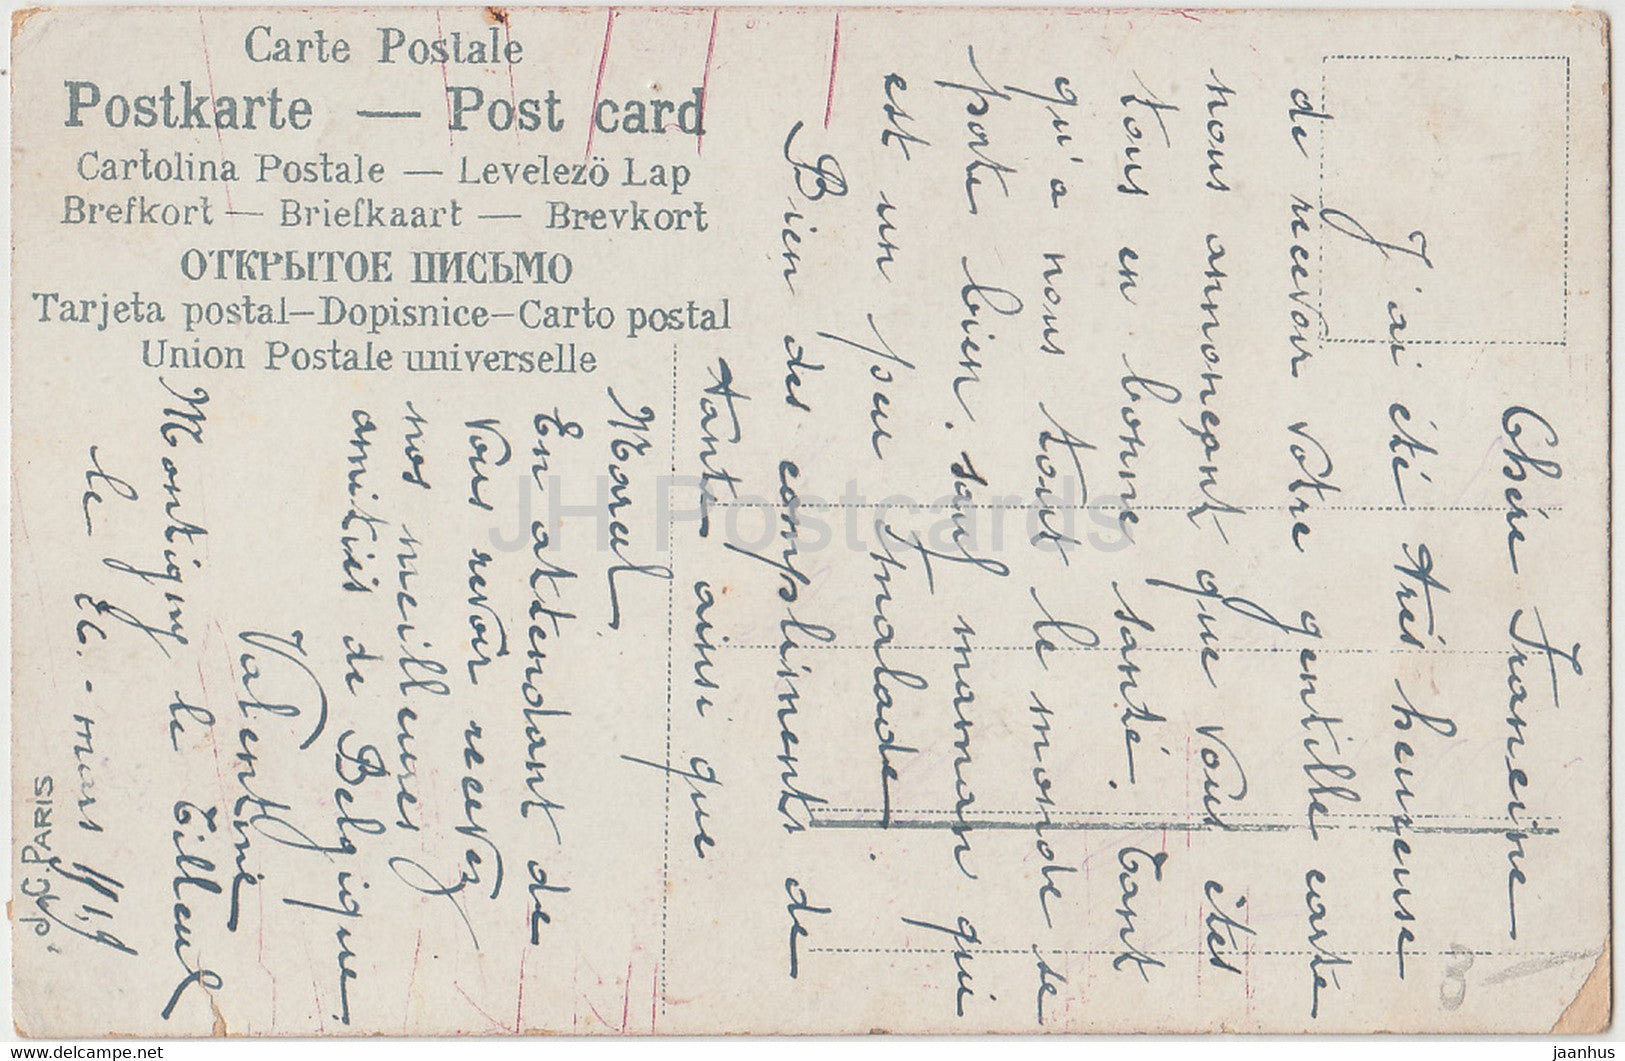 Carte Postale
Postkarte — Post card
Cartolina Postale — Levelezö Lap
Brefkort — Briefkaart — Brevkort
ОТКРЫТОЕ ПИСЬМО
Tarjeta postal—Dopisnice—Carto postal
Union Postale universelle
PARIS
Chère Francine
J'ai été très heureuse
de recevoir votre gentille carte
nous annonçant que vous êtes
tous en bonne santé. Tant
qu'a nous tout le monde se
porte bien. sauf maman qui
est un peu malade.
Bien des compliments de
tante ainsi que
Marcel.
En attendant de
vous revoir recevez
nos meilleures
amitiés de Belgique.
Valentine
Montigny le Tilleul
le mars
JH Postcards
jaanhus